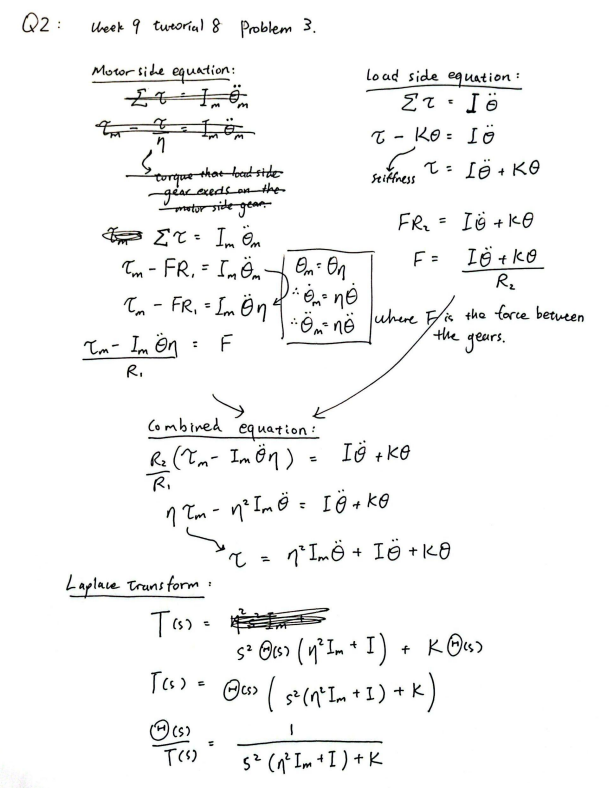 Q2: Week 9 tutorial 8 Problem 3.
Motor side equation:
Στ = I_m θ̈_m
τ_m - τ/η = I_m θ̈_m
torque that load side
gear exerts on the
motor side gear.
τ_m Στ = I_m θ̈_m
τ_m - FR₁ = I_m θ̈_m
τ_m - FR₁ = I_m θ̈η
(τ_m - I_m θ̈η)/R₁ = F
θ_m = θη
∴ θ̇_m = ηθ̇
∴ θ̈_m = ηθ̈
Load side equation:
Στ = Iθ̈
τ - Kθ = Iθ̈
stiffness τ = Iθ̈ + Kθ
FR₂ = Iθ̈ + Kθ
F = (Iθ̈ + Kθ)/R₂
where F is the force between
the gears.
Combined equation:
R₂/R₁ (τ_m - I_m θ̈η) = Iθ̈ + Kθ
ητ_m - η²I_mθ̈ = Iθ̈ + Kθ
τ = η²I_mθ̈ + Iθ̈ + Kθ
Laplace Transform:
T(s) =
s²Θ(s)(η²I_m + I) + KΘ(s)
T(s) = Θ(s)(s²(η²I_m + I) + K)
Θ(s)/T(s) = 1/(s²(η²I_m + I) + K)